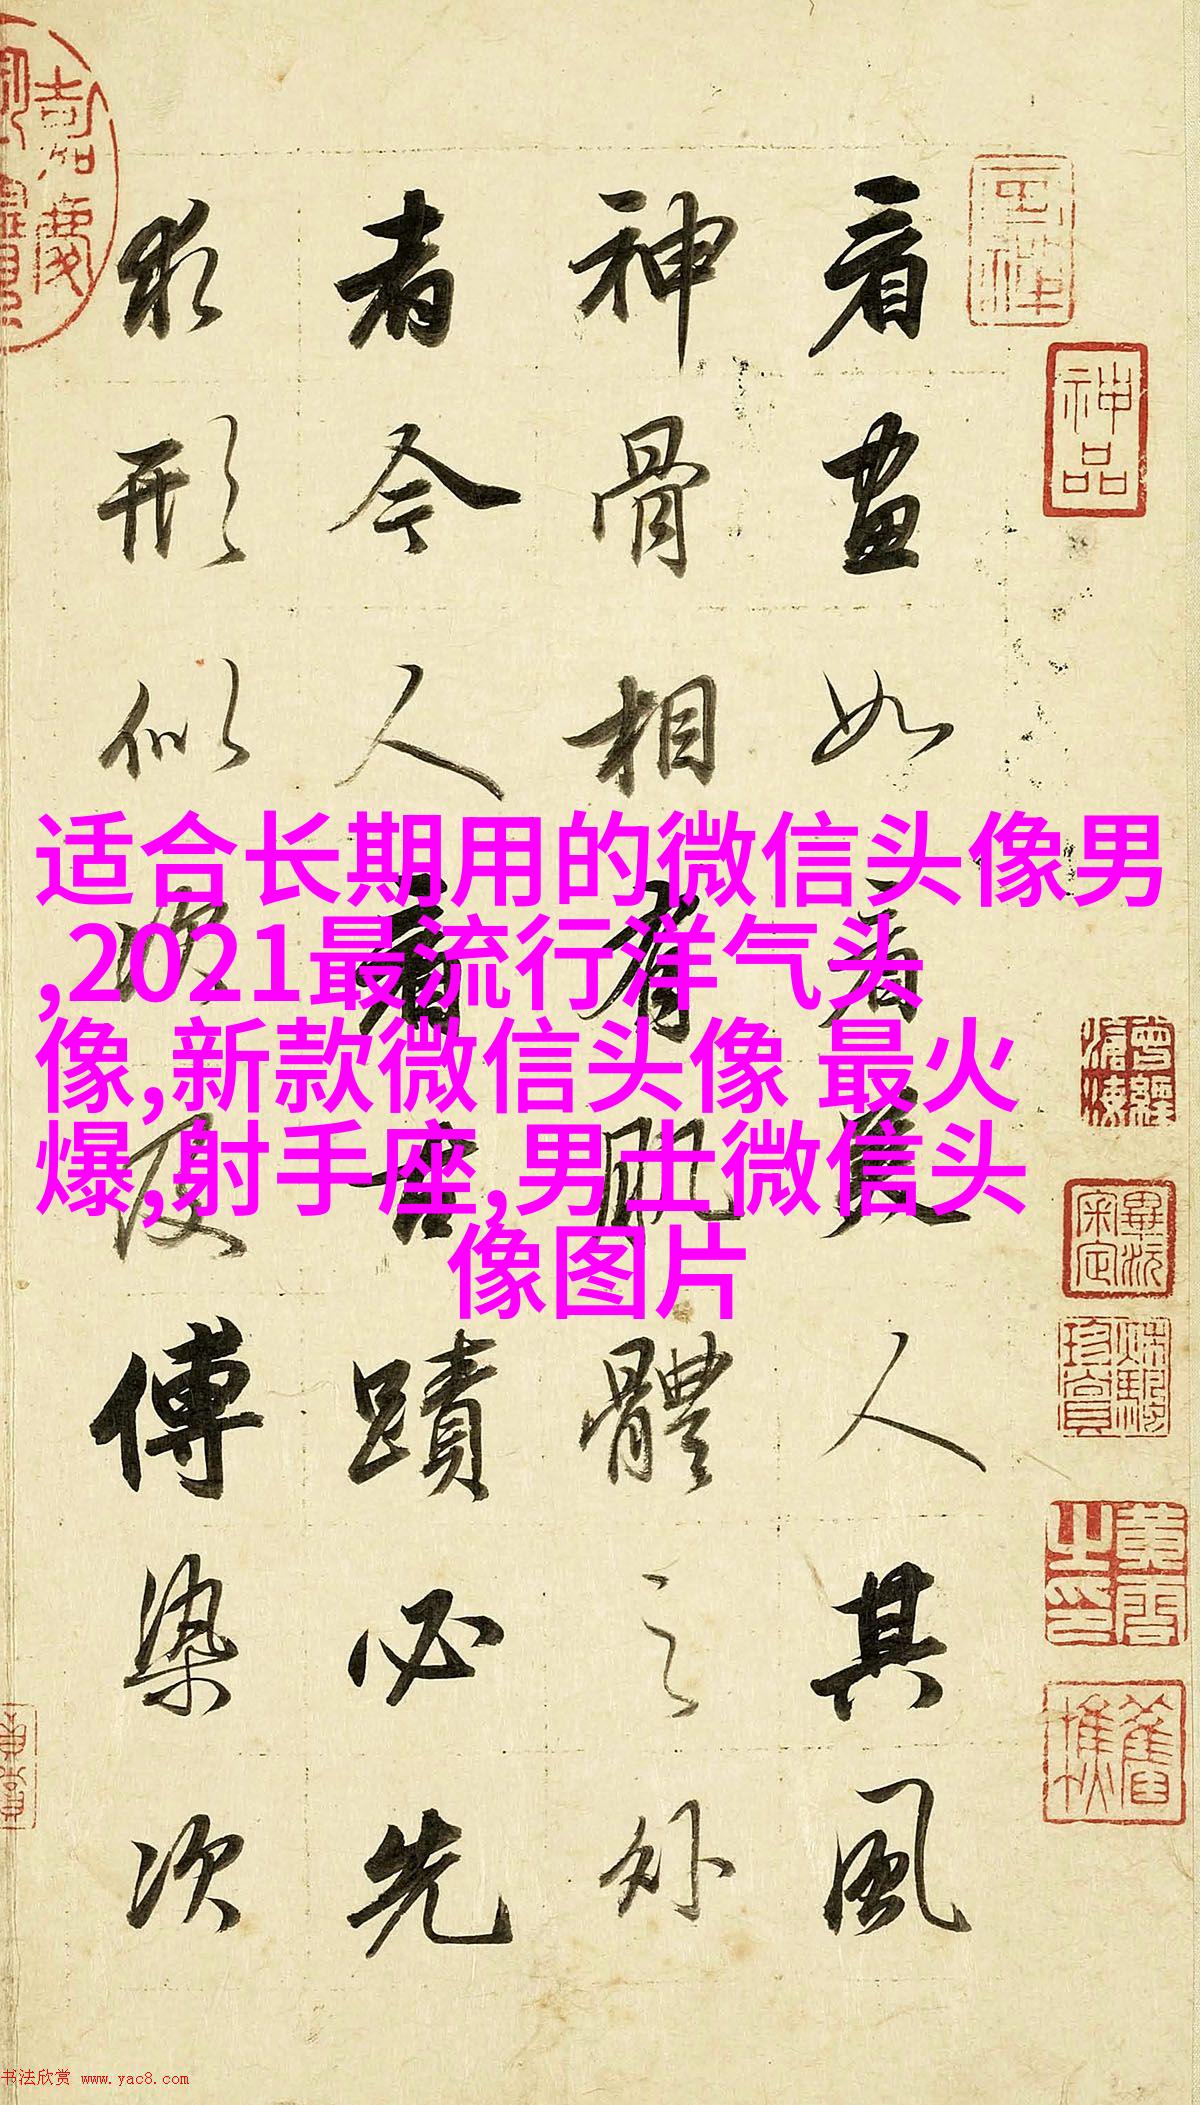 看畫如看美人其風
神骨相有肌體之外
者今人看古蹟必先
求形似次及傅染次
适合长期用的微信头像男
,2021最流行洋气头
像,新款微信头像 最火
爆,射手座,男士微信头
像图片
神品
嘉慶
畢沅審定
书法欣赏 www.yac8.com